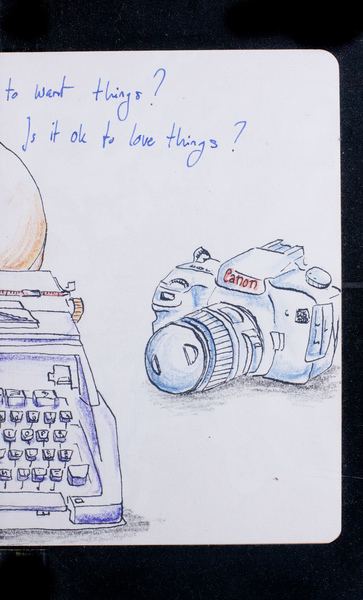 to want things?
Is it ok to love things?
Canon